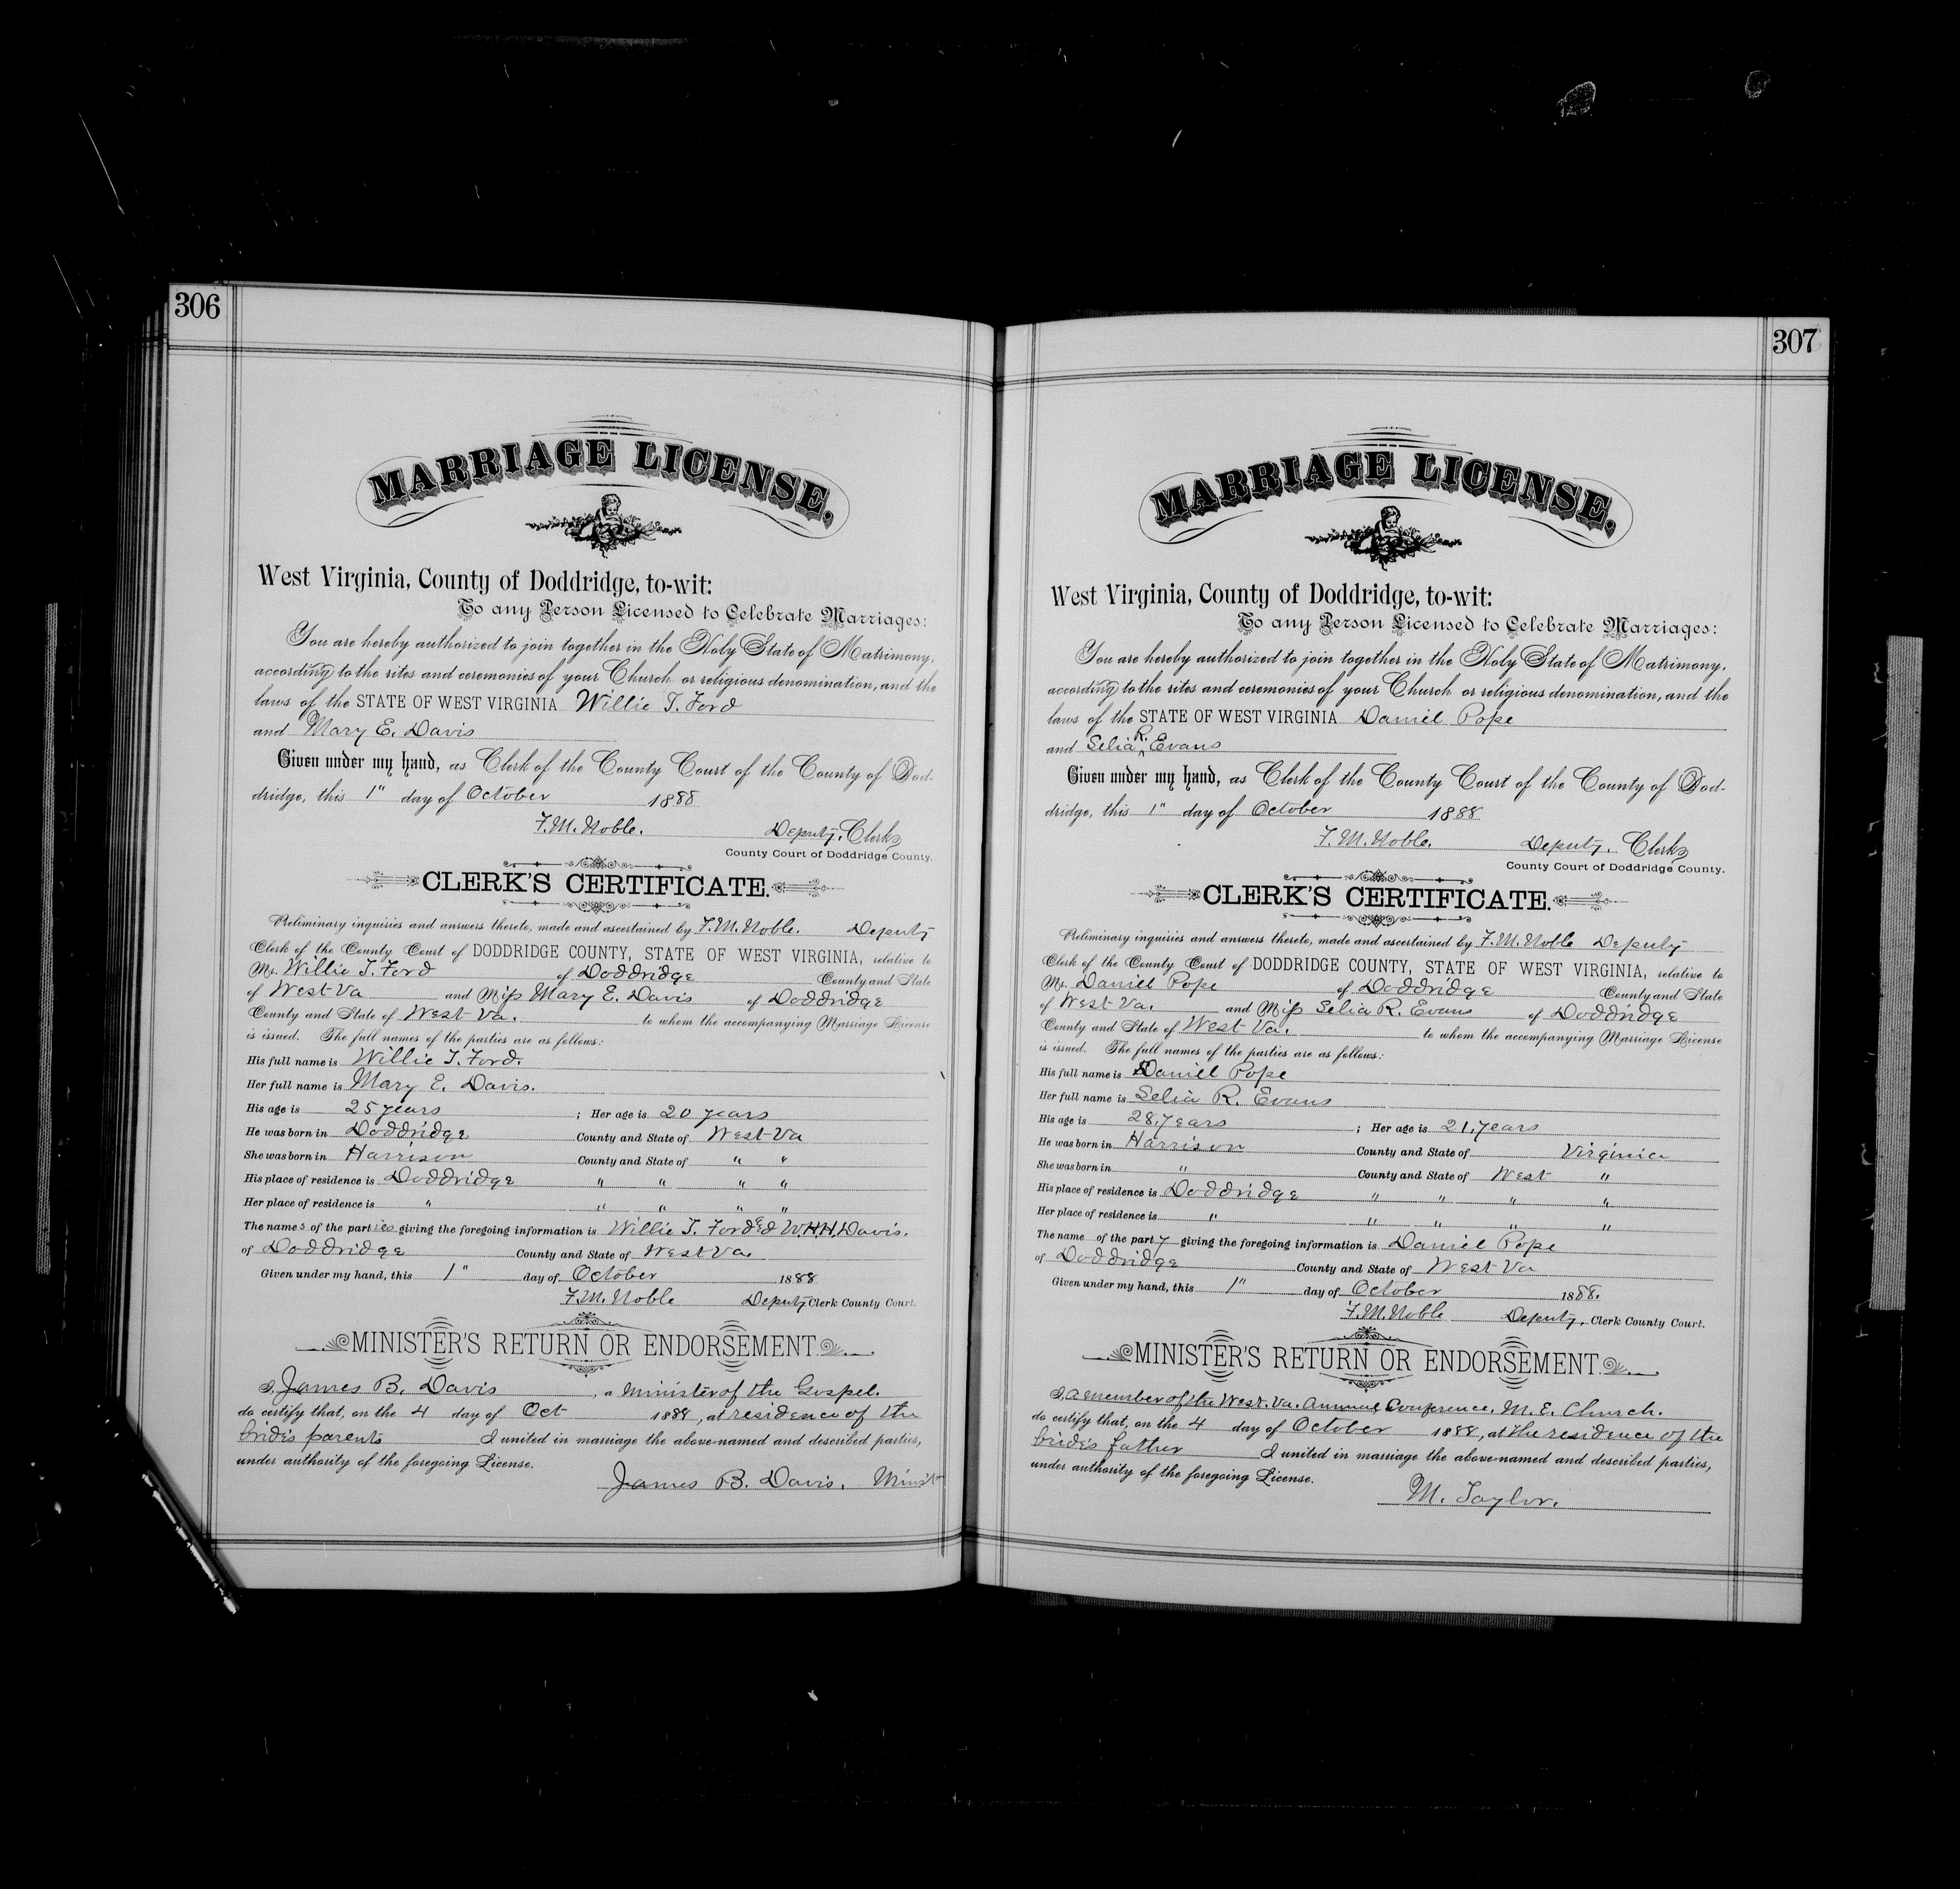 306
MARRIAGE LICENSE,
West Virginia, County of Doddridge, to-wit:
To any Person Licensed to Celebrate Marriages:
You are hereby authorized to join together in the Holy State of Matrimony,
according to the rites and ceremonies of your Church or religious denomination, and the
laws of the STATE OF WEST VIRGINIA Willie T. Ford
and Mary E. Davis
Given under my hand, as Clerk of the County Court of the County of Dod-
dridge, this 1" day of October 1888
F. M. Noble. Deputy, Clerk
County Court of Doddridge County.
CLERK'S CERTIFICATE.
Preliminary inquiries and answers thereto, made and ascertained by F. M. Noble. Deputy
Clerk of the County Court of DODDRIDGE COUNTY, STATE OF WEST VIRGINIA, relative to
Mr. Willie T. Ford of Doddridge County and State
of West Va and Miss Mary E. Davis of Doddridge
County and State of West Va. to whom the accompanying Marriage License
is issued. The full names of the parties are as follows:
His full name is Willie T. Ford.
Her full name is Mary E. Davis.
His age is 25 years ; Her age is 20 years
He was born in Doddridge County and State of West Va
She was born in Harrison County and State of " "
His place of residence is Doddridge " " " "
Her place of residence is " " " " "
The names of the parties giving the foregoing information is Willie T. Ford & W.H.H. Davis.
of Doddridge County and State of West Va
Given under my hand, this 1" day of October 1888
F. M. Noble Deputy Clerk County Court.
MINISTER'S RETURN OR ENDORSEMENT.
I, James B. Davis, a Minister of the Gospel.
do certify that, on the 4 day of Oct 1888, at residence of the
bride's parents I united in marriage the above-named and described parties,
under authority of the foregoing License.
James B. Davis. Minst
307
MARRIAGE LICENSE,
West Virginia, County of Doddridge, to-wit:
To any Person Licensed to Celebrate Marriages:
You are hereby authorized to join together in the Holy State of Matrimony,
according to the rites and ceremonies of your Church or religious denomination, and the
laws of the STATE OF WEST VIRGINIA Daniel Pope
and Selia R. Evans
Given under my hand, as Clerk of the County Court of the County of Dod-
dridge, this 1" day of October 1888
F. M. Noble. Deputy. Clerk
County Court of Doddridge County.
CLERK'S CERTIFICATE.
Preliminary inquiries and answers thereto, made and ascertained by F. M. Noble Deputy
Clerk of the County Court of DODDRIDGE COUNTY, STATE OF WEST VIRGINIA, relative to
Mr. Daniel Pope of Doddridge County and State
of West Va. and Miss Selia R. Evans of Doddridge
County and State of West Va. to whom the accompanying Marriage License
is issued. The full names of the parties are as follows:
His full name is Daniel Pope
Her full name is Selia R. Evans
His age is 28, years ; Her age is 21, years
He was born in Harrison County and State of Virginia
She was born in " County and State of West "
His place of residence is Doddridge " " " "
Her place of residence is " " " " "
The name of the party giving the foregoing information is Daniel Pope
of Doddridge County and State of West Va
Given under my hand, this 1" day of October 1888.
F. M. Noble Deputy, Clerk County Court.
MINISTER'S RETURN OR ENDORSEMENT.
I, a member of the West. Va. Annual Conference, M. E. Church.
do certify that, on the 4 day of October 1888, at the residence of the
bride's father I united in marriage the above-named and described parties,
under authority of the foregoing License.
M. Taylor.